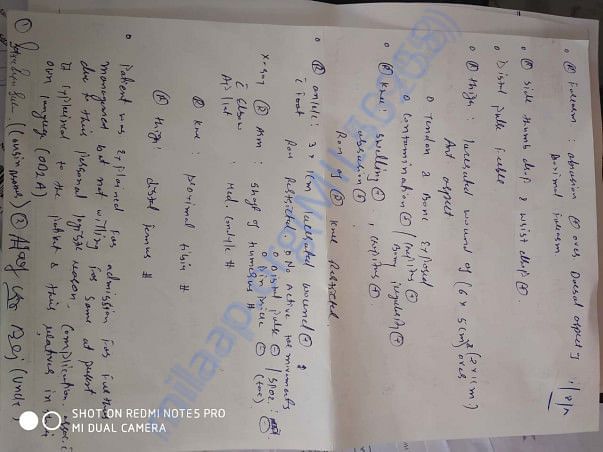 Ⓡ Forearm : abrasion ⊕ over Dorsal aspect of
Proximal forearm
Ⓡ Side thumb drop & wrist drop ⊕
Distal pulse feeble
Ⓡ thigh : lacerated wound of (2x1cm) over
Ant aspect
tendon & Bone exposed
contamination ⊕ / crepitus ⊕
Bony irregularity ⊕
Ⓡ Knee : swelling ⊕, crepitus ⊕
abrasion ⊕
Rom of Ⓡ knee Restricted.
Ⓡ ankle : 3 x 1cm lacerated wound ⊕
c̄ foot Rom Restricted. No active toe movements
Distal pulse / SpO2 :
(toe)
X-ray Ⓡ Arm : shaft of humerus #
c̄ Elbow : Med. condyle #
AP/Lat
Ⓡ Knee : proximal tibia #
Ⓡ thigh distal femur #
Patient was explained for admission for further
management but not willing for same at present
due to their personal reason, complication assoc. c̄
it explained to the patient & their relatives in their
own language (ODIA)
milaap.org
SHOT ON REDMI NOTE 5 PRO
MI DUAL CAMERA